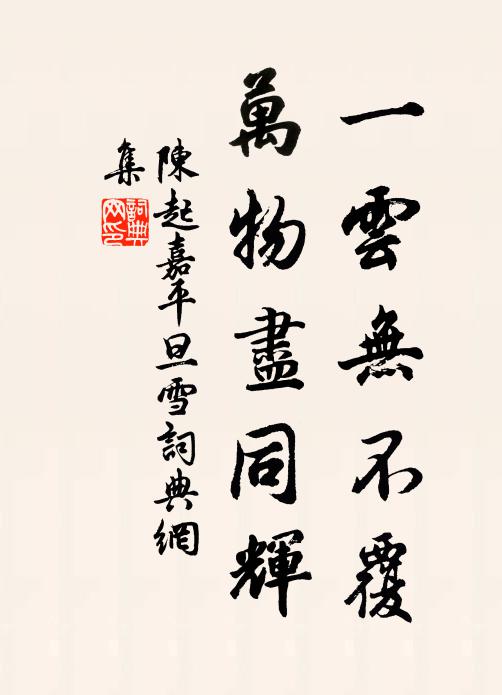 一雲無不覆
萬物盡同輝
陳起嘉平旦雪詞典網
集
詞典網印